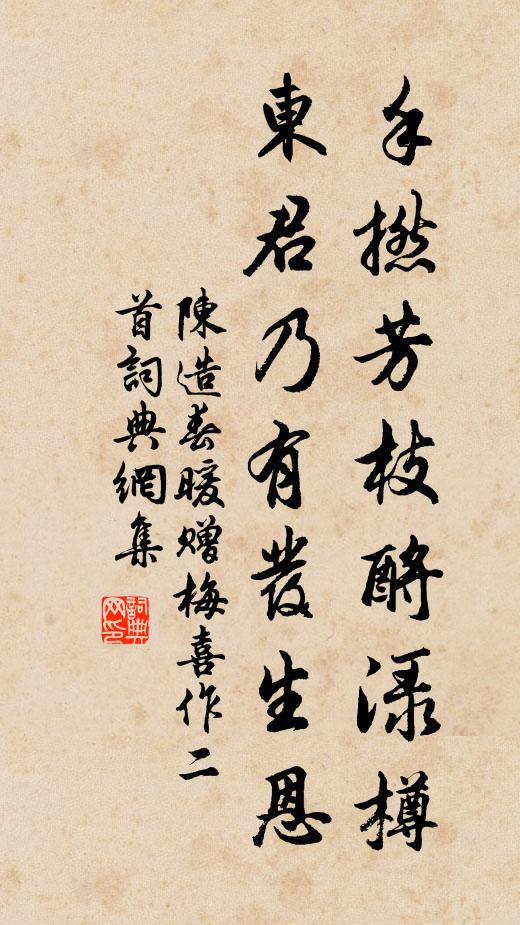 手撚芳枝酹渌樽
東君乃有發生恩
陳造春暖贈梅喜作二
首詞典網集
詞典
网印